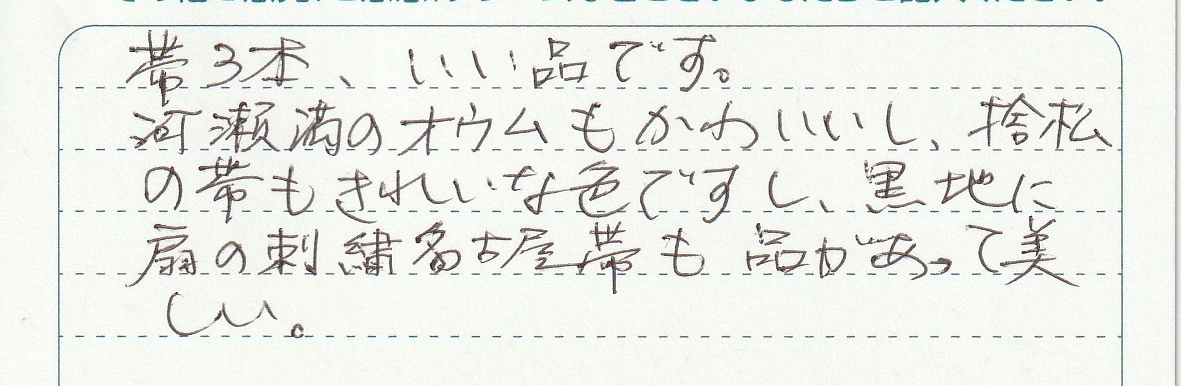 帯3本、いい品です。
河瀬満のオウムもかわいいし、捨松
の帯もきれいな色ですし、黒地に
扇の刺繍名古屋帯も品があって美
しい。